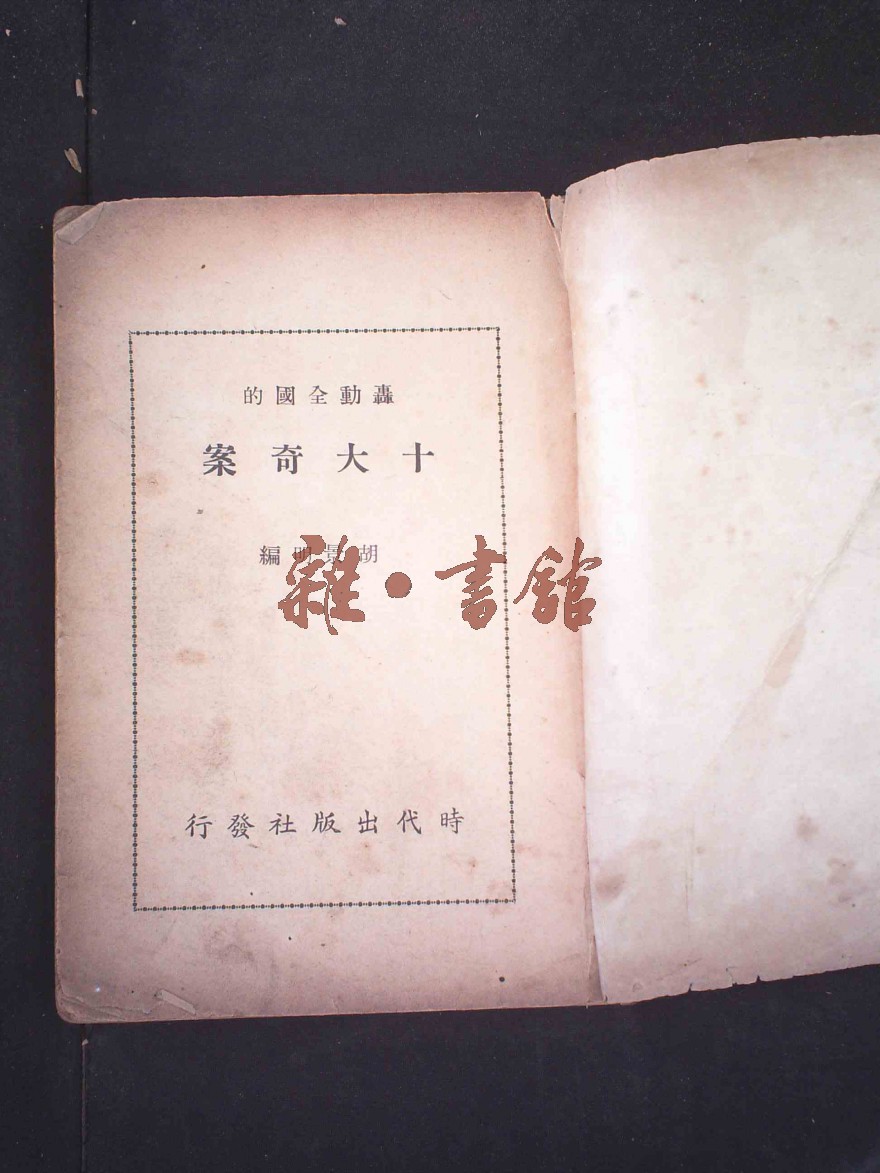 轟動全國的
十大奇案
胡景明編
雜·書館
時代出版社發行